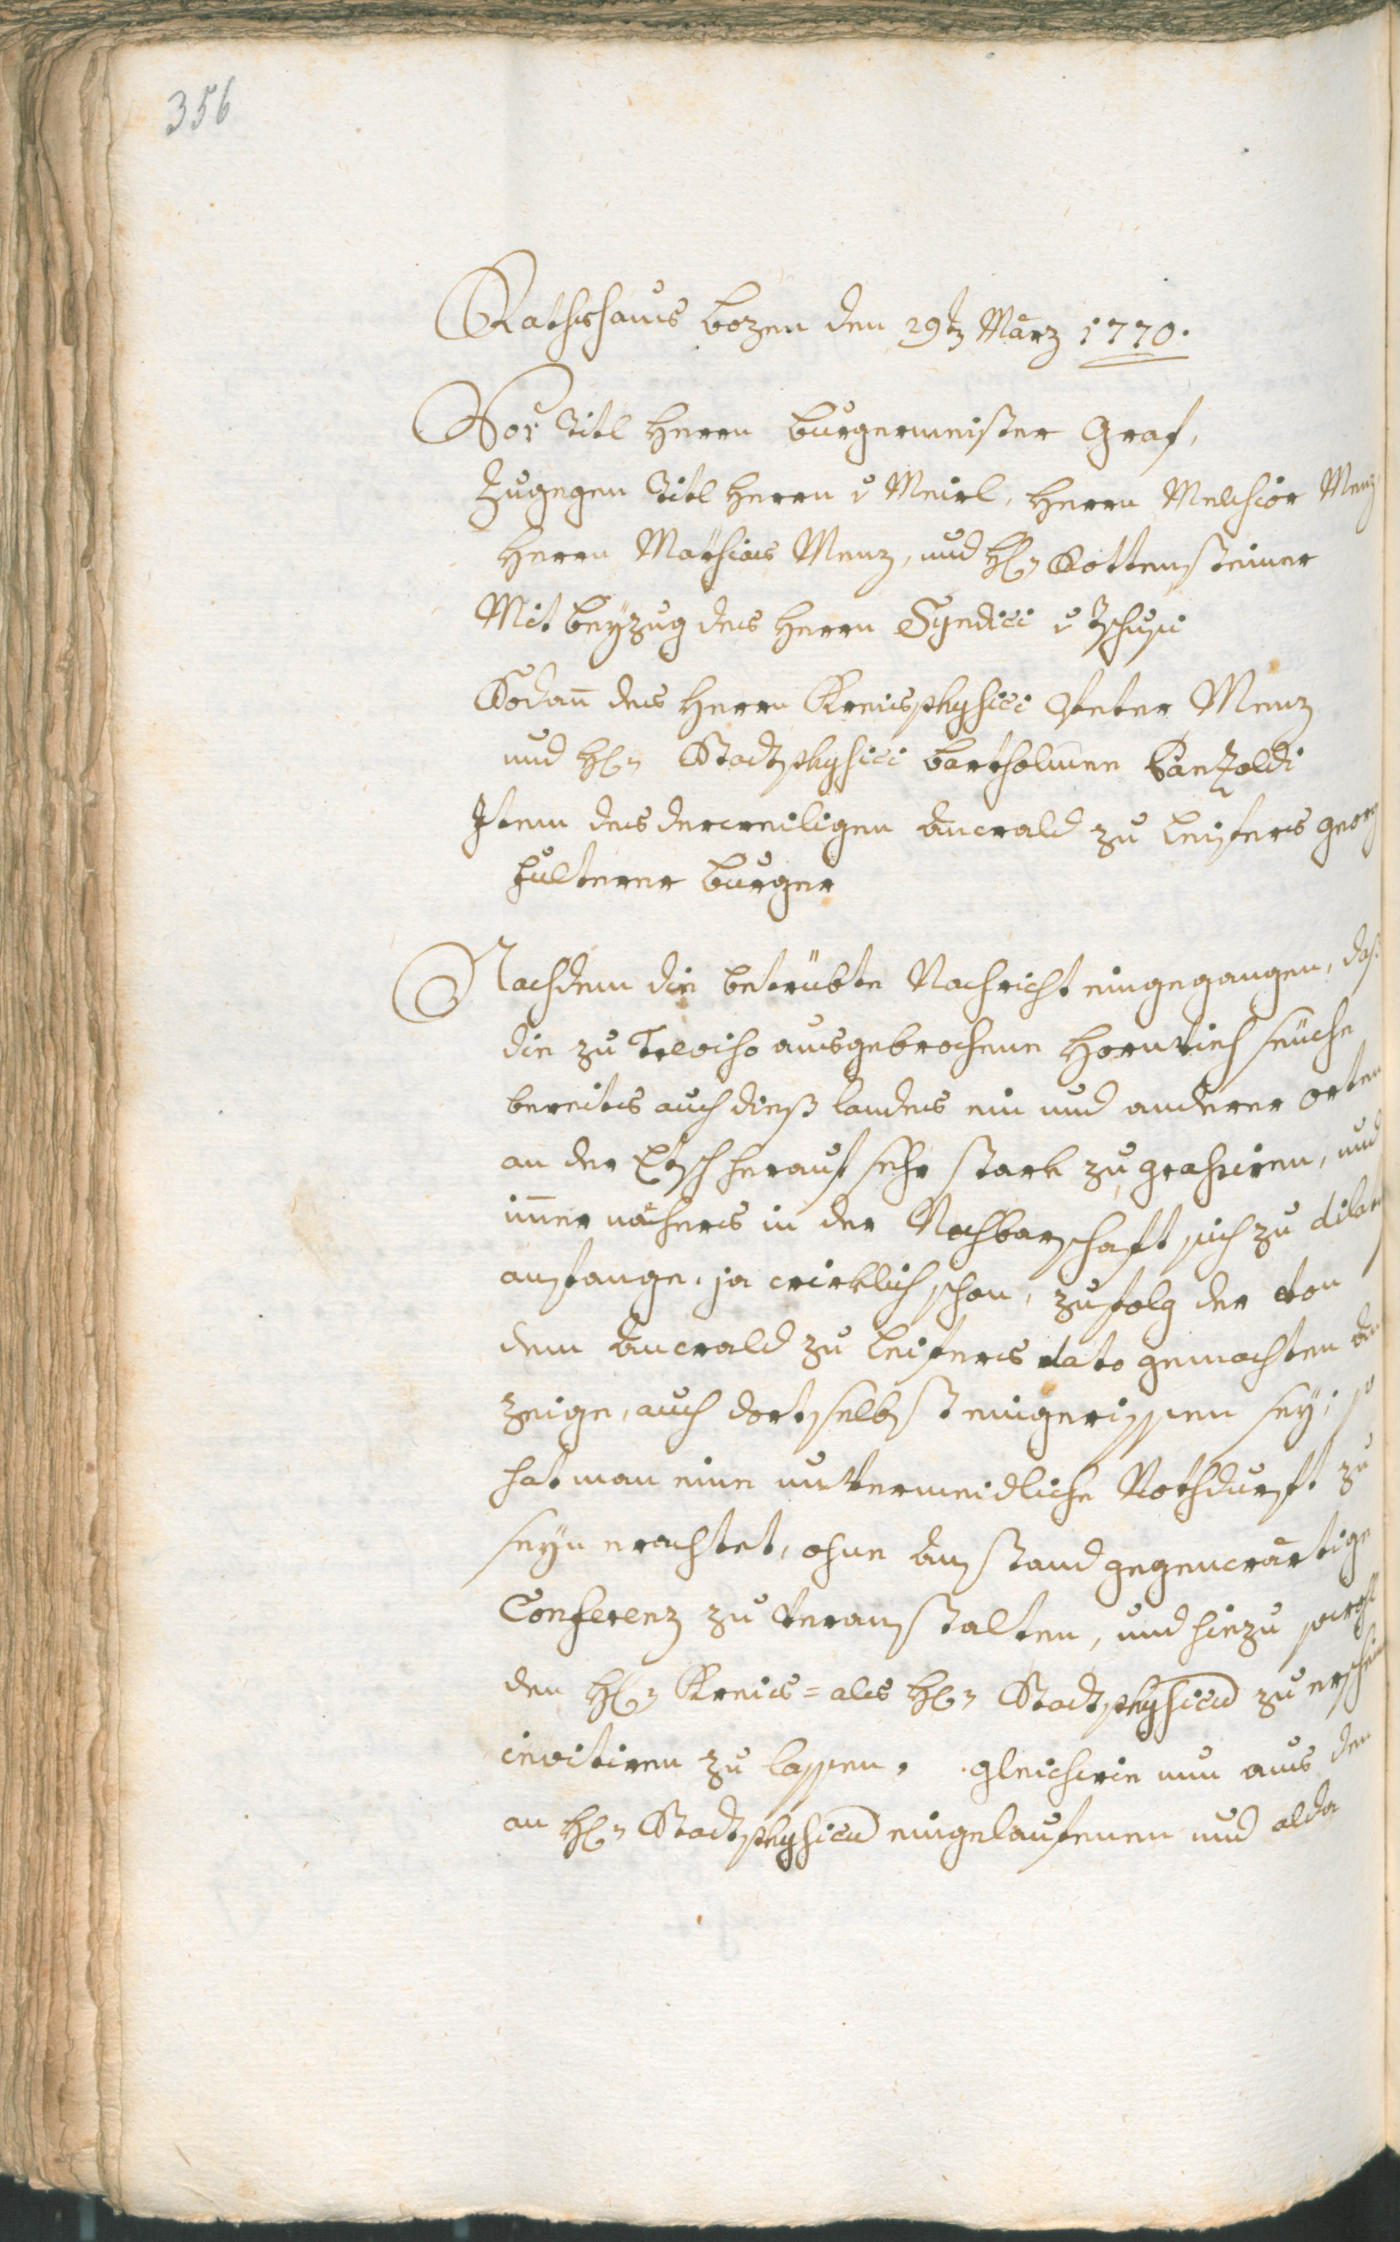 356
Rathshaus bozen den 29tꝫ März 1770.
Vor Titl Herrn burgermeister Graf,
Zugegen Titl Herrn v Meirl, Herrn Melchior Menz
Herrn Mathias Menz, und H Rottensteiner
Mit beÿzug des Herrn Syndici v Tschusi
Sodan̄ des Herrn Kreisphysici Peter Menz
und H Stadtphysici bartholmee
Item des derweiligen Anwald zu leifers georg
burger
Nachdem die betrübte Nachricht eingegangen, daß
die zu Treviso ausgebrochene Hornvieh seüche
bereits auch dieß landes ein und anderer orten
an der Etsch herauf sehr stark zu grahsiren, und
im̄er nächers in der Nachbarschaft sich zu
anfange, ja wirklich schon, zufolg der von
dem Anwald zu leifers dato gemachten An
zeige, auch dortselbst eingerissen seÿ; so
hat man eine unvermeidliche Nothdurft zu
seÿn erachtet, ohne Anstand gegenwärtige
Conferenz zu veranstalten, und hiezu sowohl
den H Kreis= als H Stadtphysicum zu erschein
invitiren zu lassen. gleichwie nun aus den
an H Stadtphysicum eingelaufenen und alda